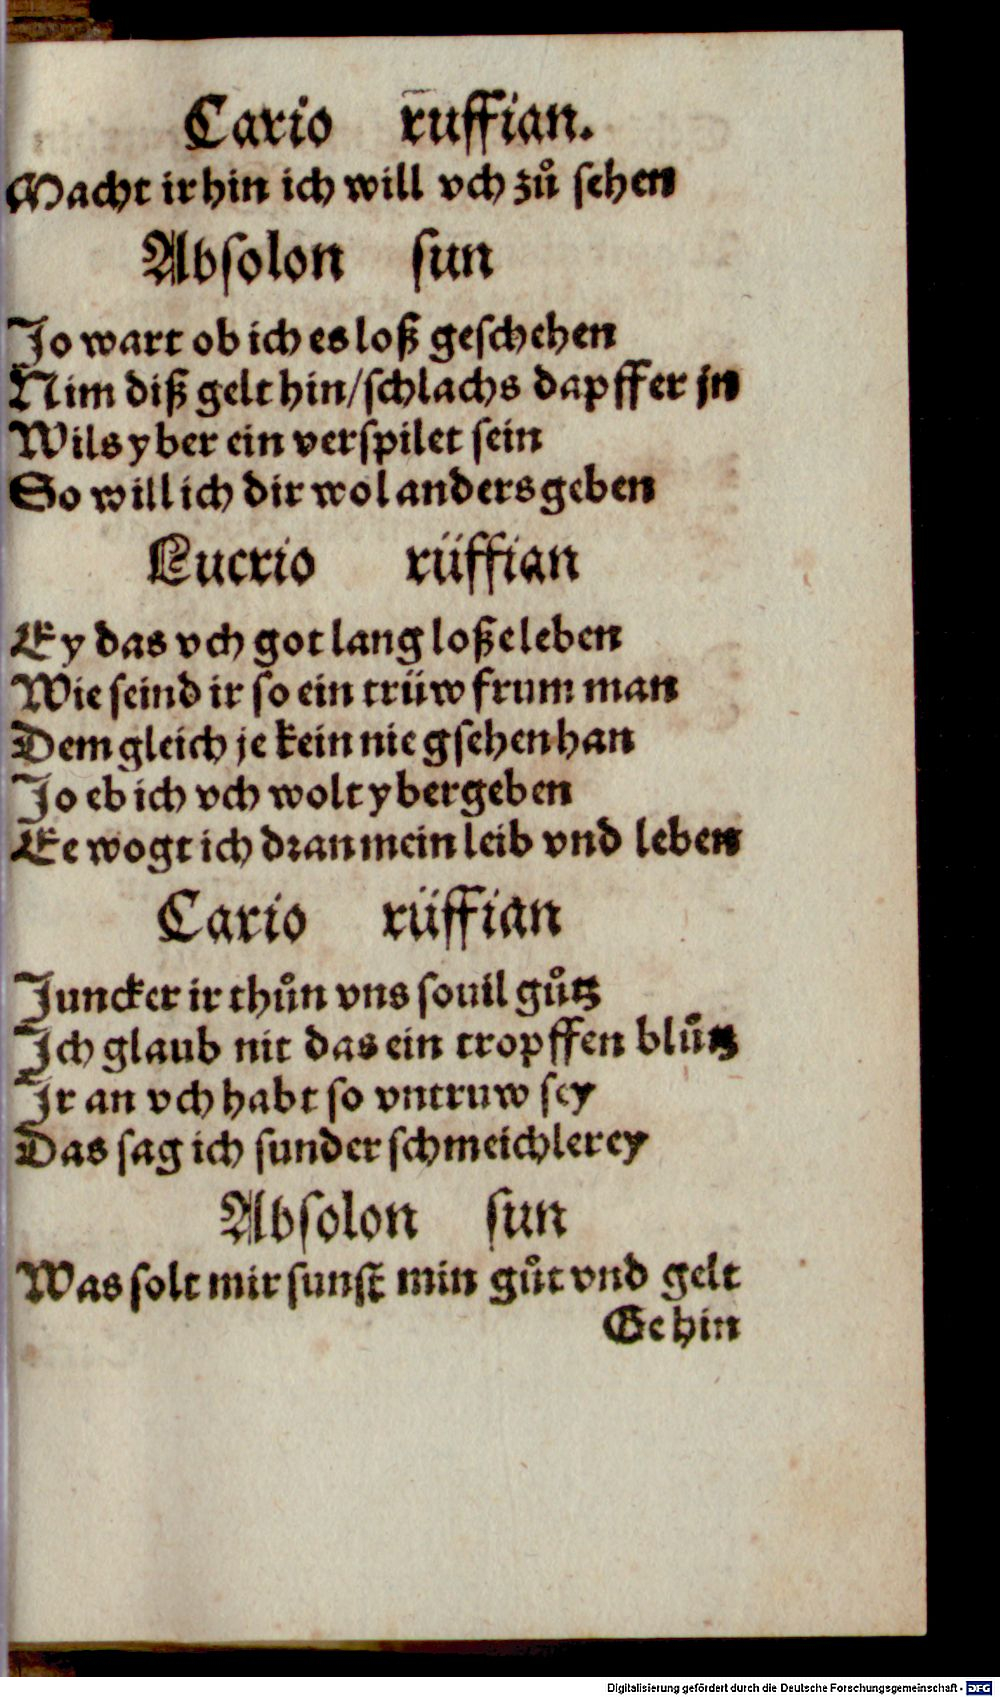 Cario ruffian.
Macht ir hin ich will vch zuͦ sehen
Absolon sun
Jo wart ob ich es loß geschehen
Nim diß gelt hin/schlachs dapffer jn
Wils yber ein verspilet sein
So will ich dir wol anders geben
Lucrio rüffian
Ey das vch got lang loße leben
Wie seind ir so ein trüw frum man
Dem gleich je kein nie gsehen han
Jo eb ich vch wolt ybergeben
Ee wogt ich dran mein leib vnd leben
Cario rüffian
Juncker ir thuͦn vns souil guͦtz
Jch glaub nit das ein tropffen bluͦtz
Jr an vch habt so vntruw sey
Das sag ich sunder schmeichlerey
Absolon sun
Was solt mir sunst min guͦt vnd gelt
Ge hin
Digitalisierung gefördert durch die Deutsche Forschungsgemeinschaft - DFG